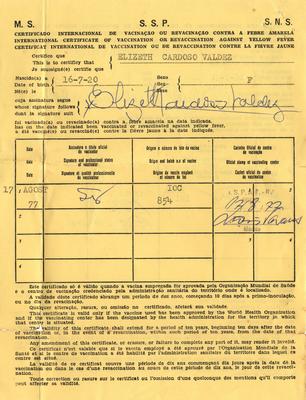 M. S. S. S. P. S. N. S.
CERTIFICADO INTERNACIONAL DE VACINAÇÃO OU REVACINAÇÃO CONTRA A FEBRE AMARELA
INTERNATIONAL CERTIFICATE OF VACCINATION OR REVACCINATION AGAINST YELLOW FEVER
CERTIFICAT INTERNATIONAL DE VACCINATION OU DE REVACCINATION CONTRE LA FIÈVRE JAUNE
Certifico que
This is to certify that ELIZETH CARDOSO VALDEZ
Je soussigné(e) certifie que
Nascido(a) a
Date of birth 16-7-20 F
Né(e) le
cuja assinatura segue
whose signature follows Elizeth Cardoso Valdez
dont la signature suit
foi vacinado(a) ou revacinado(a) contra a febre amarela na data indicada.
has on the date indicated been vaccinated or revaccinated against yellow fever.
a été vacciné(e) ou revacciné(e) contre la fièvre jaune à la date indiquée.
Data Assinatura e título oficial do vacinador Origem e número do lote da vacina Carimbo oficial do centro de vacinação
Date Signature and professional status of vaccinator Origin and batch n.o of vaccine Official stamp of vaccinating centre
Date Signature et qualité professionnelle du vaccinateur Origine du vaccin employé et numéro du lot Cachet officiel du centre de vaccination
17 AGOST 77 IOC 854
1 2
3 4
Este certificado só é válido quando a vacina empregada for aprovada pela Organização Mundial de Saúde
e o centro de vacinação credenciado pela administração sanitária do território onde é localizado.
A validade deste certificado abrange um período de dez anos, começando 10 dias após a primo-inoculação,
ou no dia da revacinação.
Qualquer alteração, rasura, ou omissão no certificado, afetará sua validade.
This certificate is valid only if the vaccine used has been approved by the World Health Organization
and if the vaccinating center has been designated by the health administration for the territory in which
that centre is situated.
The validity of this certificate shall extend for a period of ten years, beginning ten days after the date
of vaccination or, in the event of a revaccination, within such period of ten years, from the date of that
revaccination.
Any amendment of this certificate, or erasure, or failure to complete any part of it, may render it invalid.
Ce certificat n'est valable que si le vaccin employé a été approuvé par l'Organisation Mondiale de la
Santé et si le centre de vaccination a été habilité par l'administration sanitaire du territoire dans lequel ce
centre est situé.
La validité de ce certificat couvre une période de dix ans commençant dix jours après la date de la
vaccination ou dans le cas d'une revaccination au cours de cette période de dix ans, le jour de cette revacci-
nation.
Toute correction ou rature sur le certificat ou l'omission d'une quelconque des mentions qu'il comporte
peut affecter sa validité.